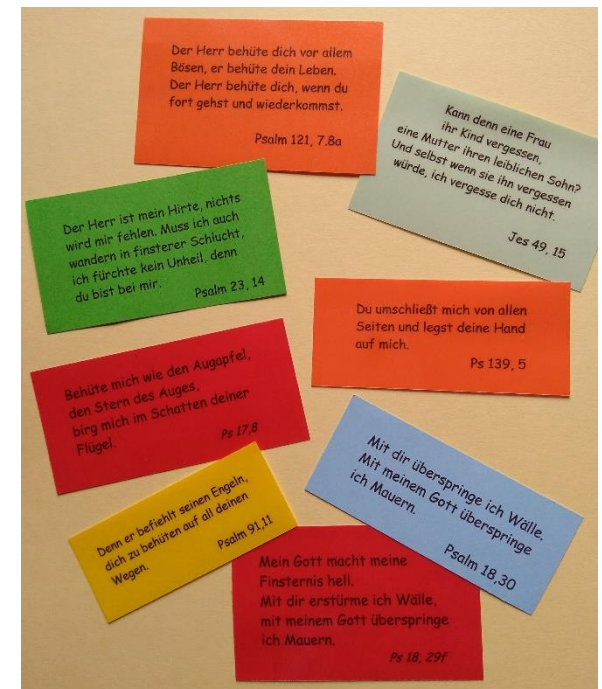 Der Herr behüte dich vor allem
Bösen, er behüte dein Leben.
Der Herr behüte dich, wenn du
fort gehst und wiederkommst.
Psalm 121, 7.8a
Kann denn eine Frau
ihr Kind vergessen,
eine Mutter ihren leiblichen Sohn?
Und selbst wenn sie ihn vergessen
würde, ich vergesse dich nicht.
Jes 49, 15
Der Herr ist mein Hirte, nichts
wird mir fehlen. Muss ich auch
wandern in finsterer Schlucht,
ich fürchte kein Unheil, denn
du bist bei mir.
Psalm 23, 14
Du umschließt mich von allen
Seiten und legst deine Hand
auf mich.
Ps 139, 5
Behüte mich wie den Augapfel,
den Stern des Auges,
birg mich im Schatten deiner
Flügel.
Ps 17,8
Mit dir überspringe ich Wälle.
Mit meinem Gott überspringe
ich Mauern.
Psalm 18,30
Denn er befiehlt seinen Engeln,
dich zu behüten auf all deinen
Wegen.
Psalm 91,11
Mein Gott macht meine
Finsternis hell.
Mit dir erstürme ich Wälle,
mit meinem Gott überspringe
ich Mauern.
Ps 18, 29f